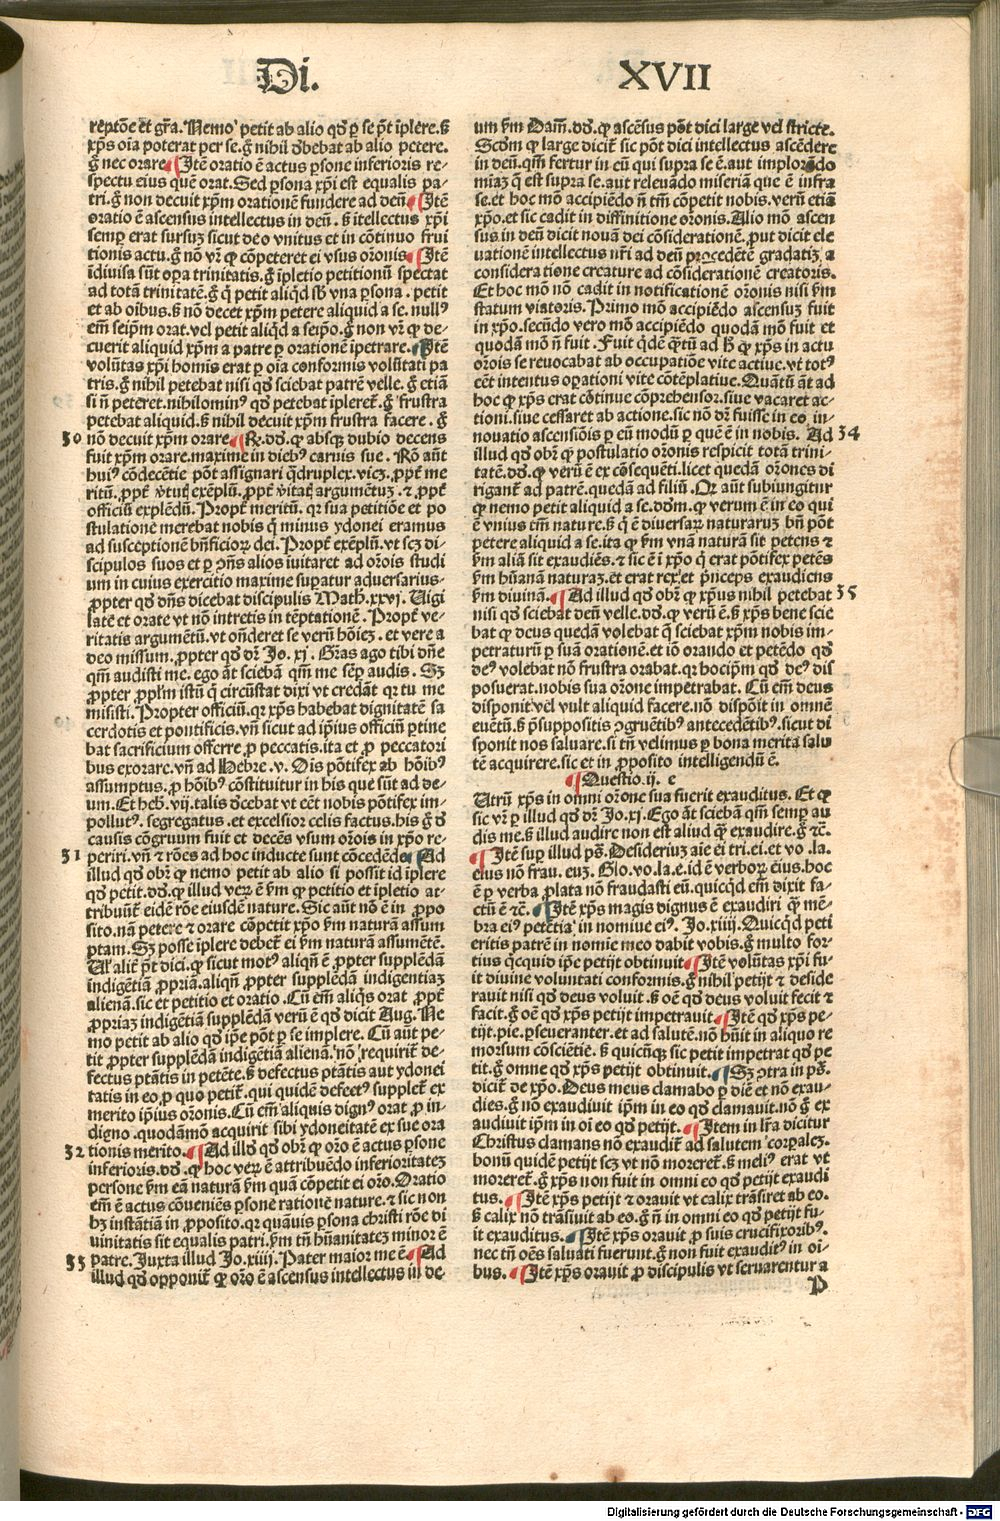 Di.
XVII
reptōe et gr̄a. Nemo petit ab alio qđ ꝑ se pōt īplere. ß
xp̄s oīa poterat per se. ḡ nihil debebat ab alio petere.
ḡ nec orare ¶ Itē oratio ē actus ꝑsone inferioris re-
spectu eius quē orat. Sed ꝑsona xp̄i est equalis pa-
tri. ḡ non decuit xp̄m orationē fundere ad deū. ¶ Itē
oratio ē ascensus intellectus in deū. ß ītellectus xp̄i
semꝑ erat sursuꝫ sicut deo vnitus et in cōtinuo frui
tionis actu. ḡ nō vr̄ ꝙ cōpeteret ei vsus orōnis ¶ Itē
īdiuisa sūt oꝑa trinitatis. ḡ īpletio petitionū spectat
ad totā trinitatē. ḡ q̄ petit aliqd sb̄ vna ꝑsona. petit
et ab oībus. ß nō decet xp̄m petere aliquid a se. nullꝰ
em̄ seip̄m orat. vel petit aliqd a seip̄o. ḡ non vr̄ ꝙ de-
cuerit aliquid xp̄m a patre ꝑ orationē īpetrare. ¶ Itē
volūtas xp̄i homis erat ꝑ oīa conformis volūtati pa
tris. ḡ nihil petebat nisi qđ sciebat patrē velle. ḡ etiā
si ñ peteret. nihilominꝰ qđ petebat īpleret̄. ḡ frustra
petebat aliquid. ß nihil decuit xp̄m frustra facere. ḡ
30 nō decuit xp̄m orare ¶ R. dđ. ꝙ absqꝫ dubio decens
fuit xp̄m orare. maxime in diebꝰ carnis sue. Rō aūt
huiꝰ cōdecētie pōt assignari qdruplex. vicꝫ. ꝓpt̄ me
ritū. ꝓpt̄ v̄tutꝭ exēplū. ꝓpt̄ v̄itatꝭ argumētuꝫ. ⁊ ꝓpt̄
officiū explēdū. Propt̄ meritū. qr sua petitiōe et po
stulatione merebat nobis q̄ minus ydonei eramus
ad susceptionē bn̄ficioꝝ dei. Propt̄ exēplū. vt scꝫ di-
scipulos suos et ꝑ ꝯn̄s alios iuitaret ad orōis studi
um in cuius exercitio maxime suꝑatur aduersarius.
ꝓpter qđ dn̄s dicebat discipulis Math̄. xxvj. Uigi
late et orate vt nō intretis in tēptationē. Propt̄ ve-
ritatis argumētū. vt on̄deret se verū hōieꝫ. et vere a
deo missum. ꝓpter qđ dr̄ Jo. xj. Gr̄as ago tibi dn̄e
qm̄ audisti me. ego āt sciebā qm̄ me sēꝑ audis. Sꝫ
ꝓpter ꝓpl̄m istū q̄ circūstat dixi vt credāt qr tu me
misisti. Propter officiū. qr xp̄s habebat dignitatē sa
cerdotis et pontificis. vn̄ sicut ad ip̄ius officiū ꝑtine
bat sacrificium offerre ꝓ peccatis. ita et ꝓ peccatori
bus exorare. vn̄ ad Hebre. v. Oīs pōtifex ab hōibꝰ
assumptus. ꝓ hōibꝰ cōstituitur in his que sūt ad de-
um. Et heb̄. vij. talis decebat vt eēt nobis pōtifex im-
pollutꝰ. segregatus. et excelsior celis factus. his ḡ đ
causis cōgruum fuit et decēs vsum orōis in xp̄o re-
31 periri. vn̄ ⁊ rōes ad hoc inducte sunt cōcedēde ¶ Ad
illud qđ obr̄ ꝙ nemo petit ab alio si possit id īplere
qđ petit. dđ. ꝙ illud veꝝ ē v̄m ꝙ petitio et īpletio at-
tribuūt̄ eidē rōe eiusdē nature. Sic aūt nō ē in ꝓpo
sito. nā petere ⁊ orare cōpetit xp̄o v̄m naturā assum
ptam. Sꝫ posse īplere debet̄ ei v̄m naturā assumētē.
Uel alit̄ pōt dici. ꝙ sicut motꝰ aliqñ ē ꝓpter supplēdā
indigētiā ꝓpriā. aliqñ ꝓpter supplēdā indigentiaꝫ
alienā. sic et petitio et oratio. Cū em̄ aliqs orat ꝓpt̄
ꝓpriaꝫ indigētiā supplēdā verū ē qđ dicit Aug. Ne
mo petit ab alio qđ ip̄e pōt ꝑ se implere. Cū aūt pe-
tit ꝓpter supplēdā indigētiā alienā. nō requirit̄ de-
fectus ptātis in petēte. ß defectus ptātis aut ydonei
tatis in eo. ꝓ quo petit̄. qui quidē defectꝰ supplet̄ ex
merito ip̄ius orōnis. Cū em̄ aliquis dignꝰ orat ꝓ in-
digno. quodāmō acquirit sibi ydoneitatē ex sue ora
32 tionis merito. ¶ Ad illđ qđ obr̄ ꝙ oro ē actus ꝑsone
inferioris. dđ. ꝙ hoc veꝝ ē attribuēdo inferioritateꝫ
persone v̄m eā naturā v̄m quā cōpetit ei orō. Oratio
em̄ ē actus cōueniēs ꝑsone ratione nature. ⁊ sic non
hꝫ instātiā in ꝓposito. qr quāuis ꝑsona christi rōe di
uinitatis sit equalis patri. v̄m tn̄ hūanitateꝫ minor ē
33 patre. Juxta illud Jo. xiiij. Pater maior me ē ¶ Ad
illud qđ opponit̄ ꝙ orō ē ascensus intellectus in de-
um v̄m Dam̄. dđ. ꝙ ascēsus pōt dici large vel stricte.
Scđm ꝙ large dicit̄ sic pōt dici intellectus ascēdere
in deū. qm̄ fertur in eū qui supra se ē. aut implorādo
mīaꝫ q̄ est supra se. aut releuādo miseriā que ē infra
se. et hoc mō accipiēdo ñ tm̄ cōpetit nobis. verū etiā
xp̄o. et sic cadit in diffinitione orōnis. Alio mō ascen
sus in deū dicit nouā dei cōsiderationē. ꝓut dicit ele
uationē intellectus nr̄i ad deū procedētē gradatiꝫ a
consideratione creature ad cōsiderationē creatoris.
Et hoc mō nō cadit in notificationē orōnis nisi v̄m
statum viatoris. Primo mō accipiēdo ascensuꝫ fuit
in xp̄o. secūdo vero mō accipiēdo quodā mō fuit et
quodā mō ñ fuit. Fuit qdē q̄tū ad h̄ ꝙ xp̄s in actu
orōis se reuocabat ab occupatiōe vite actiue. vt totꝰ
eēt intentus oꝑationi vite cōtēplatiue. Quātū āt ad
hoc ꝙ xp̄s erat cōtinue cōprehensor. siue vacaret ac-
tioni. siue cessaret ab actione. sic nō dr̄ fuisse in eo in-
nouatio ascensiōis ꝑ eū modū ꝑ quē ē in nobis. Ad 34
illud qđ obr̄ ꝙ postulatio orōnis respicit totā trini-
tatē. dđ. ꝙ verū ē ex cōsequēti. licet quedā orōnes di
rigant̄ ad patrē. quedā ad filiū. Qr aūt subiungitur
ꝙ nemo petit aliquid a se. dđm. ꝙ verum ē in eo qui
ē vnius tm̄ nature. ß q̄ ē diuersaꝝ naturaruꝫ bn̄ pōt
petere aliquid a se. ita ꝙ v̄m vnā naturā sit petens ⁊
v̄m aliā sit exaudiēs. ⁊ sic ē ī xp̄o q̄ erat pōtifex petēs
v̄m hūanā naturaꝫ. et erat rex et pn̄ceps exaudiens
v̄m diuinā. ¶ Ad illud qđ obr̄ ꝙ xp̄us nihil petebat 35
nisi qđ sciebat deū velle. dđ. ꝙ verū ē. ß xp̄s bene scie
bat ꝙ deus quedā volebat q̄ sciebat xp̄m nobis im-
petraturū ꝑ suā orationē. et iō orando et petēdo qđ
deꝰ volebat nō frustra orabat. qr hocip̄m qđ deꝰ dis
posuerat. nobis sua orōne impetrabat. Cū em̄ deus
disponit vel vult aliquid facere. nō dispōit in omnē
euētū. ß p̄suppositis ꝯgruētibꝰ antecedētibꝰ. sicut di
sponit nos saluare. si tn̄ velimus ꝑ bona merita salu
tē acquirere. sic et in ꝓposito intelligendū ē.
¶ Questio. ij. e
Utrū xp̄s in omni orōne sua fuerit exauditus. Et ꝙ
sic vr̄ ꝑ illud qđ dr̄ Jo. xj. Ego āt sciebā qm̄ semꝑ au
dis me. ß illud audire non est aliud q̄ exaudire. ḡ ⁊c̄.
¶ Itē suꝑ illud ps̄. Desideriuꝫ aīe ei tri. ei. et vo. la.
eius nō frau. euꝫ. Glo. vo. la. e. id ē verboꝝ eius. hoc
ē ꝑ verba ꝓlata nō fraudasti eū. quicqd em̄ dixit fa-
ctū ē ⁊c̄. ¶ Itē xp̄s magis dignus ē exaudiri q̄ mē-
bra eiꝰ petētia in nomīe eiꝰ. Jo. xiiij. Quicqd peti
eritis patrē in nomie meo dabit vobis. ḡ multo for
tius qcquid ip̄e petijt obtinuit ¶ Itē volūtas xp̄i fu-
it diuine voluntati conformis. ḡ nihil petijt ⁊ deside
rauit nisi qđ deus voluit. ß oē qđ deus voluit fecit ⁊
facit. ḡ oē qđ xp̄s petijt impetrauit ¶ Itē qđ xp̄s pe-
tijt. pie. ꝑseueranter. et ad salutē. nō hūit in aliquo re
morsum cōsciētie. ß quicūqꝫ sic petit impetrat qđ pe
tit. ḡ omne qđ xp̄s petijt obtinuit. ¶ Sꝫ ꝯtra in ps̄.
dicit̄ de xp̄o. Deus meus clamabo ꝑ diē et nō exau-
dies. ḡ nō exaudiuit ip̄m in eo qđ clamauit. nō ḡ ex
audiuit ip̄m in oī eo qđ petijt. ¶ Item in lr̄a dicitur
Christus clamans nō exaudit̄ ad salutem corꝑaleꝫ.
bonū quidē petijt scꝫ vt nō moreret̄. ß meliꝰ erat vt
moreret̄. ḡ xp̄s non fuit in omni eo qđ petijt exaudi
tus. ¶ Itē xp̄s petijt ⁊ orauit vt calix trāsiret ab eo.
ß calix nō trāsiuit ab eo. ḡ ñ in omni eo qđ petijt fu-
it exauditus. ¶ Itē xp̄s orauit ꝓ suis crucifixoribꝰ.
nec tn̄ oēs saluati fuerunt. ḡ non fuit exauditꝰ in oī-
bus. ¶ Itē xp̄s orauit ꝓ discipulis vt seruarentur a
P
Digitalisierung gefördert durch die Deutsche Forschungsgemeinschaft - DFG